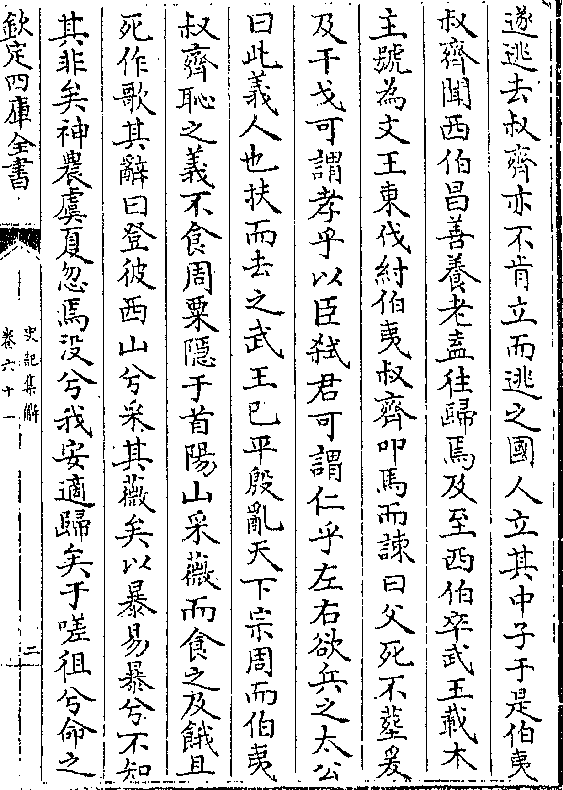 遂逃去叔齊亦不肯立而逃之國人立其中子于是伯夷
叔齊聞西伯昌善養老盍往歸焉及至西伯卒武王載木
主號為文王東伐紂伯夷叔齊叩馬而諫曰父死不塟爰
及干戈可謂孝乎以臣弑君可謂仁乎左右欲兵之太公
曰此義人也扶而去之武王已平殷亂天下宗周而伯夷
叔齊恥之義不食周粟隱于首陽山采薇而食之及餓且
死作歌其辭曰登彼西山兮采其薇矣以暴易暴兮不知
其非矣神農虞夏忽焉没兮我安適歸矣于嗟徂兮命之
欽定四庫全書
史記集解
卷六十一
二